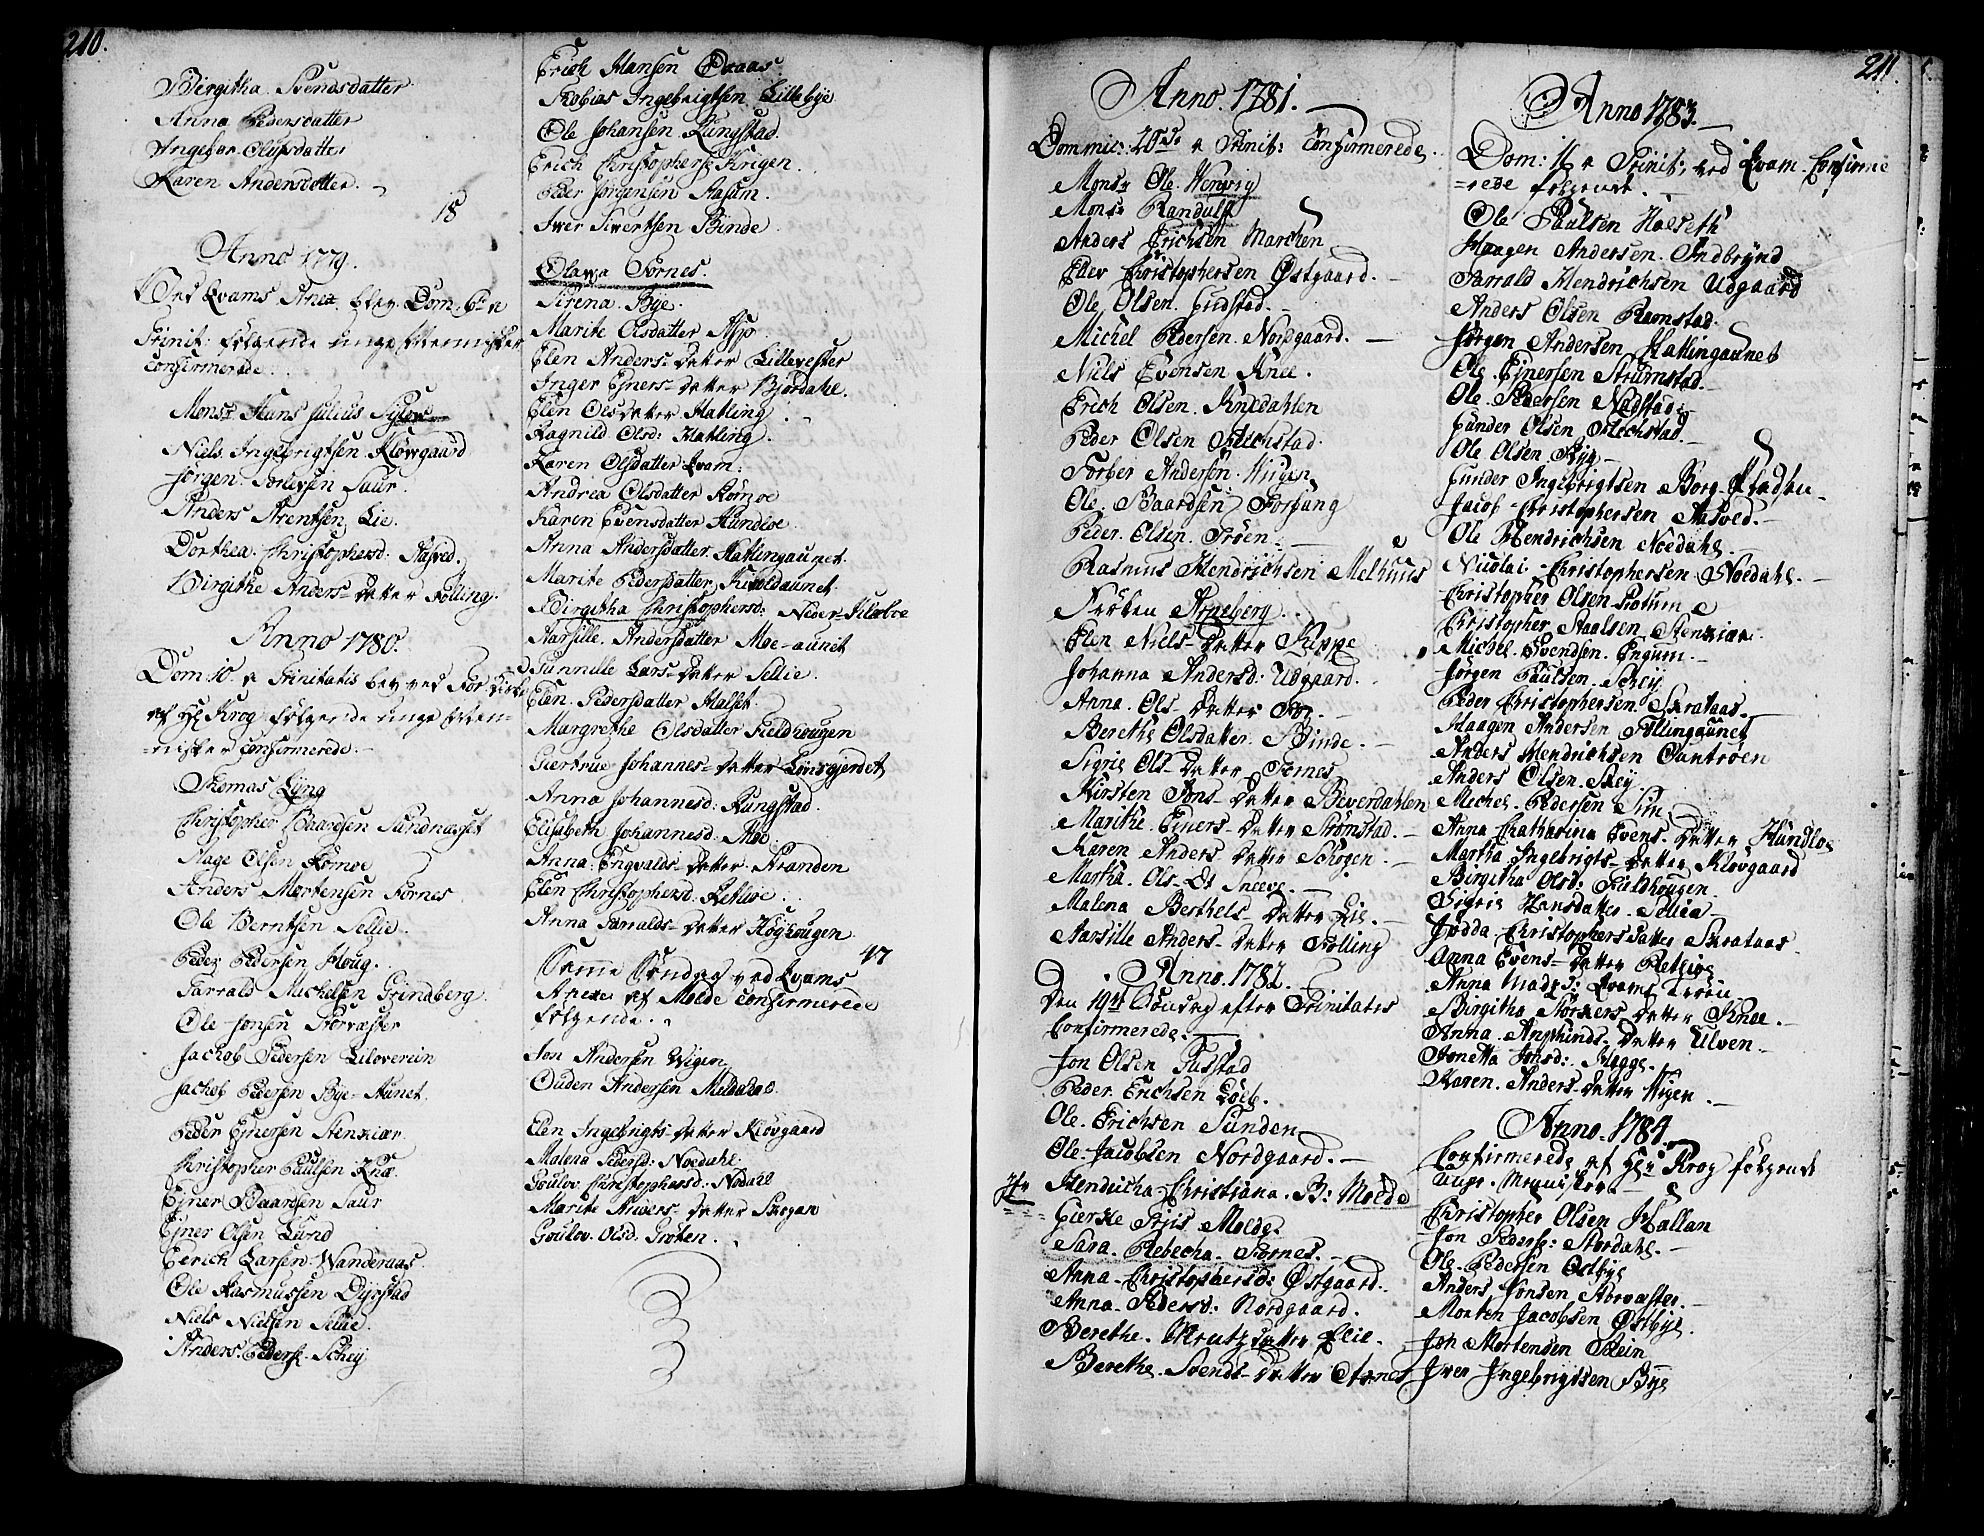 210.
Birgitha Bendsdatter
Anna Pedersdatter
Ingebor Olufsdatter
Karen Andersdatter.
18
Anno 1779.
Ved Qvams blev Dom. 6 p
Trinit: følgende unge Mennisker
Confirmerede.
Monsr Hans Julius
Niels Ingebrigtsen Kløvgaard
Jørgen Saur.
Anders Arentsen Lie.
Dorthea Christophersd: Aasved.
Birgithe Anders-datter Følling.
Anno 1780.
Dom. 10. p Trinitatis blev ved For Kirke
af Hr Krog følgende unge Men-
nisker confirmerede.
Thomas Lyng
Christopher Baardsen Sundnæsset
Aage Olsen
Anders Mortensen Fornes
Ole Berntsen Sellie.
Peder Pedersen Houg.
Tarrald Michelsen Grindberg.
Ole Jonsen Størvæster
Jachob Pedersen
Jachob Pedersen Bye-Aunet.
Peder Ejnersen Stenkiær.
Christopher Paulsen Knæ.
Ejner Baardsen Saur
Ejner Olsen Lund
Erich Larsen Wanderaas
Ole Rasmussen Dyrstad
Niels Nielsen Sellie.
Anders Peders: Schey
Erich Hansen
Tobias Ingebrigtsen Lillebye
Ole Johansen Rungstad.
Erich Christophers: Krigen.
Peder Jørgensen Aasum.
Iver Sivertsen Binde.
Olawa Fornes.
Sirena Bye.
Marite Olsdatter Asp.
Elen Anders-datter Lillevester
Inger Ejners-datter Bjørdahl.
Elen Olsdatter Hatling
Ragnild Olsd: Hatling.
Karen Olsdatter Qvam.
Andrea Olsdatter
Karen Evensdatter Hundloe.
Anna Andersdatter Hatlingaunet.
Marite Pedersdatter
Birgitha Christophersd: Neder-
Aarsille Andersdatter Moe-aunet
Gunnille Lars-datter Sellie.
Elen Pedersdatter Halset.
Margrethe Olsdatter Fieldhougen
Giertrue Johannes-datter
Anna Johannesd: Rungstad.
Elisabeth Johannesd. Moe.
Anna Engvalds-datter Stranden
Elen Christophersd.
Anna Tarralds-datter Høghougen
47
Samme Søndag ved Qvams
Annex af Molde confirmerede
følgende.
Jon Andersen Wigen
Ouden Andersen
Elen Ingebrigts-datter Kløvgaard
Malena Pedersd: Noedahl.
Goulov Christophersd: Nodahl
Marite Arvers-datter Skogan
Goulov Olsd. Grøten.
211.
Anno. 1781.
Dominic: 20de p Trinit: Confirmerede.
Monsr Ole
Monsr Randulf
Anders Erichsen Marchen
Elev Christophersen Østgaard.
Ole Olsen
Michel Pedersen Nordgaard.
Niels Evensen Knee.
Erich Olsen Knedahlen
Peder Olsen Flechstad.
Torber Andersen Wigen
Ole Baardsen Forfang
Peder Olsen Trøen.
Rasmus Hendrichsen Melhuus
Frøken Arneberg.
Elen Niels-datter
Johanna Andersd: Udgaard.
Anna Ols-datter
Berethe Olsdatter Binde.
Sigrie Ols-datter Fornes
Kirsten Tons-datter Beverdahlen
Marithe Ejners-datter Strømstad.
Karen Anders-datter
Martha Ols-dt Sneeve.
Malena Berthels-datter Lie.
Aarsille Anders-datter Følling
Anno. 1782.
Den 19de Søndag efter Trinitates
Confirmerede.
Jon Olsen
Peder Erichsen
Ole Erichsen Sunden
Ole Jacobsen Nordgaard.
Hendricha Christiana B: Molde
Molde.
Sara Rebecha Fornes.
Anna Christophersd: Østgaard.
Anna Pedersd: Nordgaard.
Berethe
Berethe Svends-datter
Anno 1783.
Dom: 11 p Trinit: ved Qvam Confirme-
rede følgende.
Ole Paulsen Holseth
Haagen Andersen Indbrynd
Tarrald Hendrichsen Udgaard
Anders Olsen Ramstad.
Jørgen Andersen Hatlingaunet
Ole Ejnersen Strømstad.
Ole Pedersen
Gunder Olsen Flechstad.
Ole Olsen
Gunder Ingebrigtsen Borg
Jacob Christophersen Aasved.
Ole Hendrichsen Noedahl.
Nicolai Christophersen Noedahl.
Christopher Olsen Rotum
Christopher Staalsen Stenkiær.
Michel Svendsen Engum.
Jørgen Paulsen Schey
Peder Christophersen Skrataas.
Haagen Andersen Føllingaunet
Anders Hendrichsen
Anders Olsen Skey.
Michel Pedersen
Anna Chatharina Evens-datter Hundloe
Martha Ingebrigts-datter Kløvgaard
Birgitha Olsd: Fieldhougen.
Sigrie Hansdatter Sellie
Christophersdatter Skrataas.
Anna Evens-datter
Anna Qvams
Birgitha Størkers datter Knee.
Anna Amphinds-datter Ulven
Jonetta Johsd: Skagge.
Karen Anders-datter Wigen.
Anno. 1784.
Confirmerede af Hr Krog følgende
unge Mennisker.
Christopher Olsen Hallan
Jon Peders: Stordahl.
Ole Pedersen Østbye
Anders Jonsen Storvæster.
Morten Jacobsen Østbye.
Joh Mortensen Stein
Iver Ingebrigtsen Bye